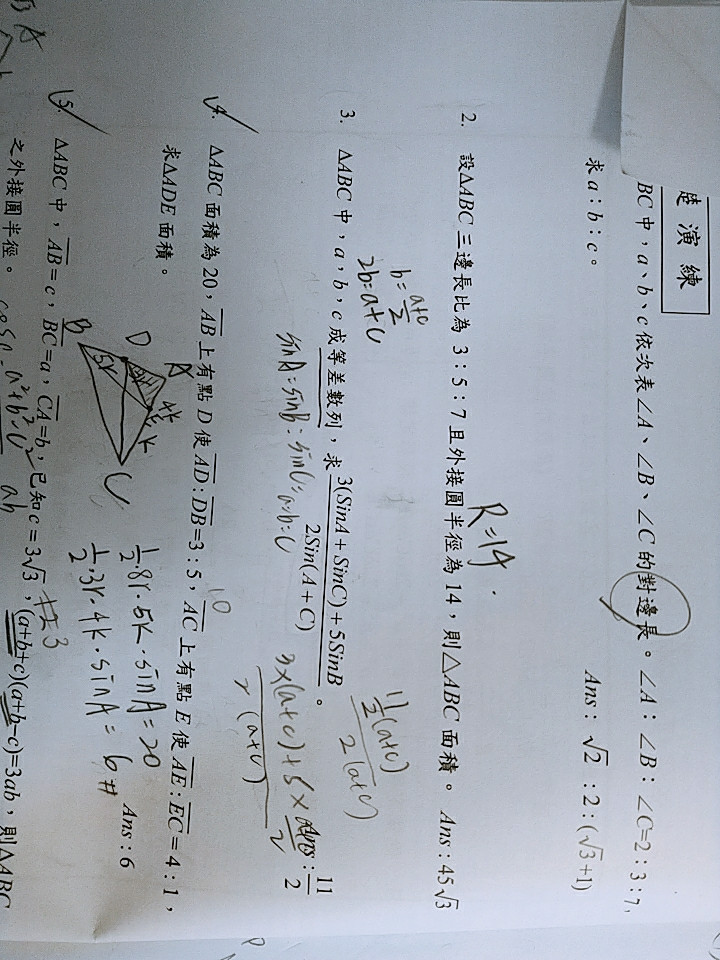 楚演練
BC中,a、b、c 依次表∠A、∠B、∠C的對邊長。∠A:∠B:∠C=2:3:7,
求a:b:c。
Ans:√2 :2:(√3+1)
R=14
2. 設△ABC三邊長比為 3:5:7 且外接圓半徑為14,則△ABC面積。 Ans:45√3
b=a+c/2
2b=a+c
3. △ABC中,a,b,c成等差數列,求 3(SinA+SinC)+5SinB / 2Sin(A+C)。
Ans:11/2
11/2(a+c) / 2(a+c)
sinA=sinB=sinC=a=b=C
4. △ABC面積為20,AB上有點D使AD:DB=3:5,AC上有點E使AE:EC=4:1,
求△ADE面積。
Ans:6
A
B
C
D
4k
k
1/2·8r·5k·sinA=20
1/2·3r·4k·sinA=6#
5. △ABC中,AB=c,BC=a,CA=b,已知c=3√3,(a+b+c)(a+b-c)=3ab,則△ABC
之外接圓半徑。